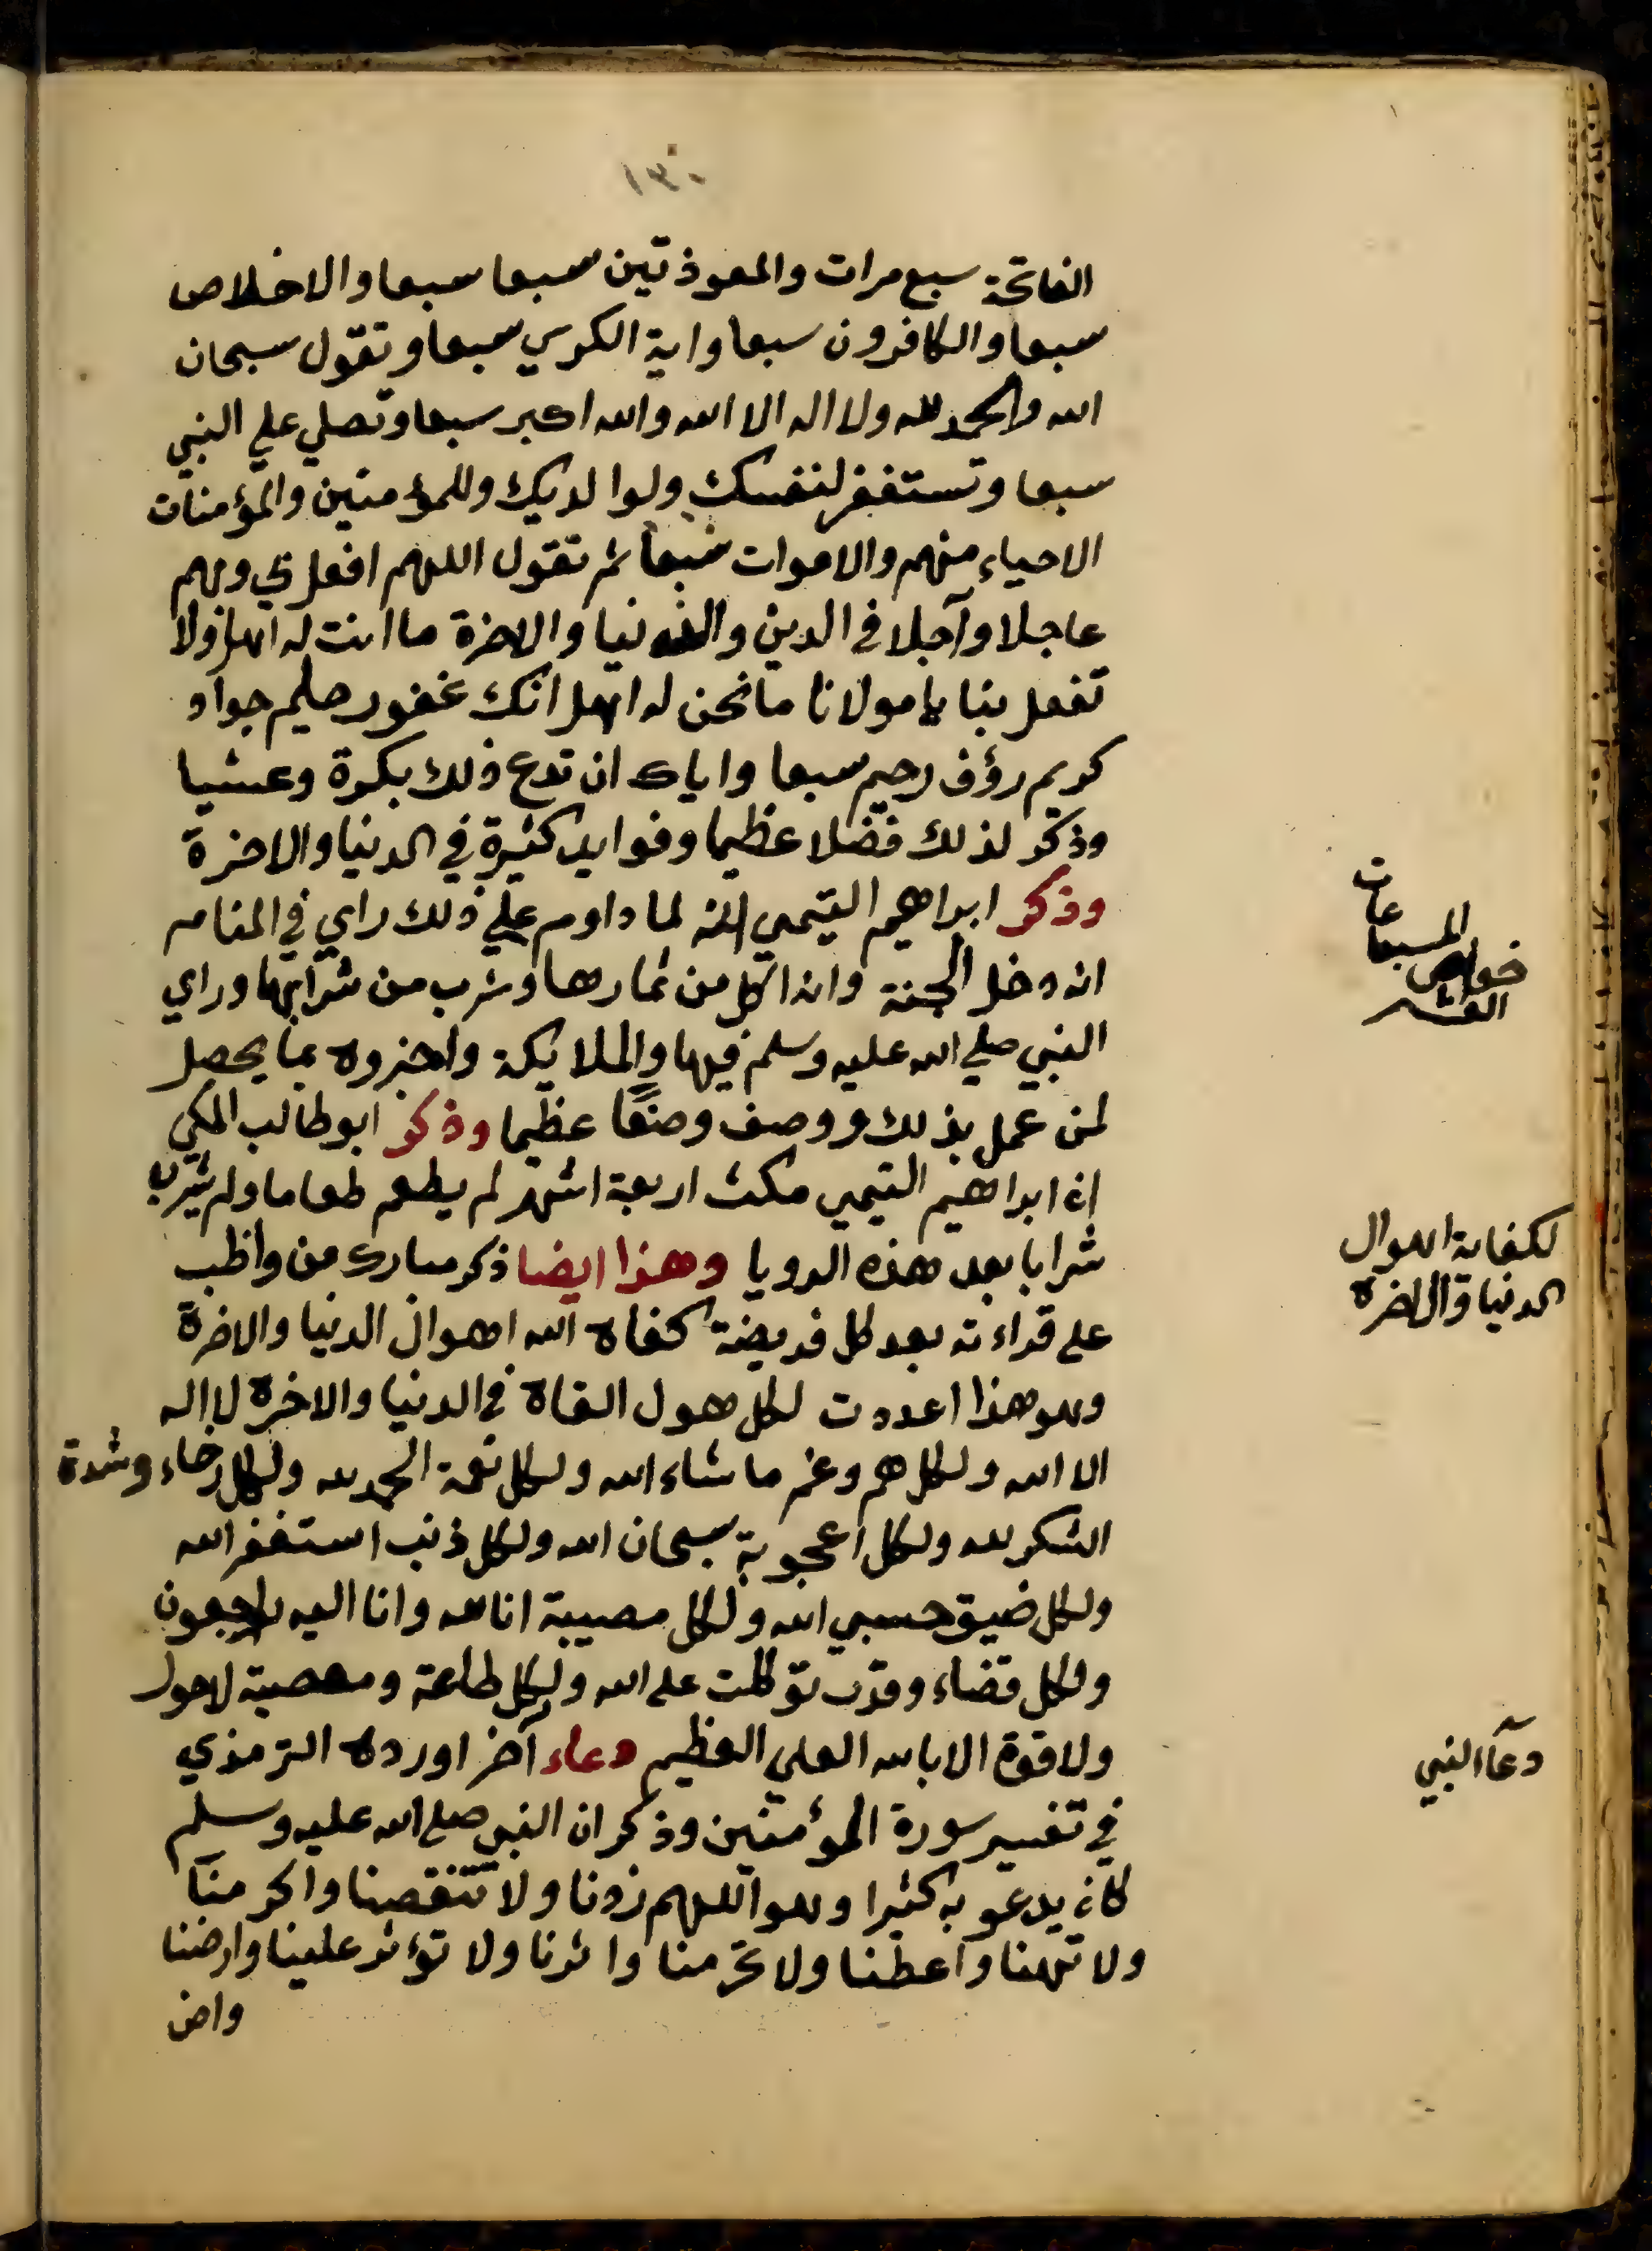 ١٣٠
الفاتحة سبع مرات والمعوذتين سبعا سبعا والاخلاص
سبعا والكافرون سبعا واية الكرسي سبعا وتقول سبحان
الله والحمد لله ولا اله الا الله والله اكبر سبعا وتصلي علي النبي
سبعا وتستغفر لنفسك ولوالديك وللمؤمنين والمؤمنات
الاحياء منهم والاموات سبعا ثم تقول اللهم افعل بي وبهم
عاجلا وآجلا في الدين والدنيا والاخرة ما انت له اهل ولا
تفعل بنا يا مولانا ما نحن له اهل انك غفور حليم جواد
كريم رؤف رحيم سبعا واياك ان تدع ذلك بكرة وعشيا
وذكر لذلك فضلا عظيما وفوايد كثيرة في الدنيا والاخرة
وذكر ابراهيم التيمي انه لما داوم علي ذلك راي في المنام
انه دخل الجنة وانه اكل من ثمارها وشرب من شرابها وراي
النبي صلي الله عليه وسلم فيها والملايكة واخبروه بما يحصل
لمن عمل بذلك ووصف وصفًا عظيما وذكر ابو طالب المكي
ان ابراهيم التيمي مكث اربعة اشهر لم يطعم طعاما ولم يشرب
شرابا بعد هذه الرويا وهذا ايضا ذكر مبارك من واظب
على قراءته بعد كل فريضة كفاه الله اهوال الدنيا والاخرة
وهو هذا اعددت لكل هول القاه في الدنيا والاخرة لا اله
الا الله ولكل هم وغم ما شاء الله ولكل نعمة الحمد لله ولكل رخاء وشدة
الشكر لله ولكل اعجوبة سبحان الله ولكل ذنب استغفر الله
ولكل ضيق حسبي الله ولكل مصيبة انا لله وانا اليه راجعون
ولكل قضاء وقدر توكلت على الله ولكل طاعة ومعصية لا حول
ولا قوة الا بالله العلي العظيم دعاء آخر اورده الترمذي
في تفسير سورة المؤمنين وذكر ان النبي صلى الله عليه وسلم
كان يدعو به كثيرا وهو اللهم زدنا ولا تنقصنا واكرمنا
ولا تهنا واعطنا ولا تحرمنا واثرنا ولا تؤثر علينا وارضنا
وارض
المسبعات
خواص
العشر
لكفاية اهوال
الدنيا والاخرة
دعاء النبي